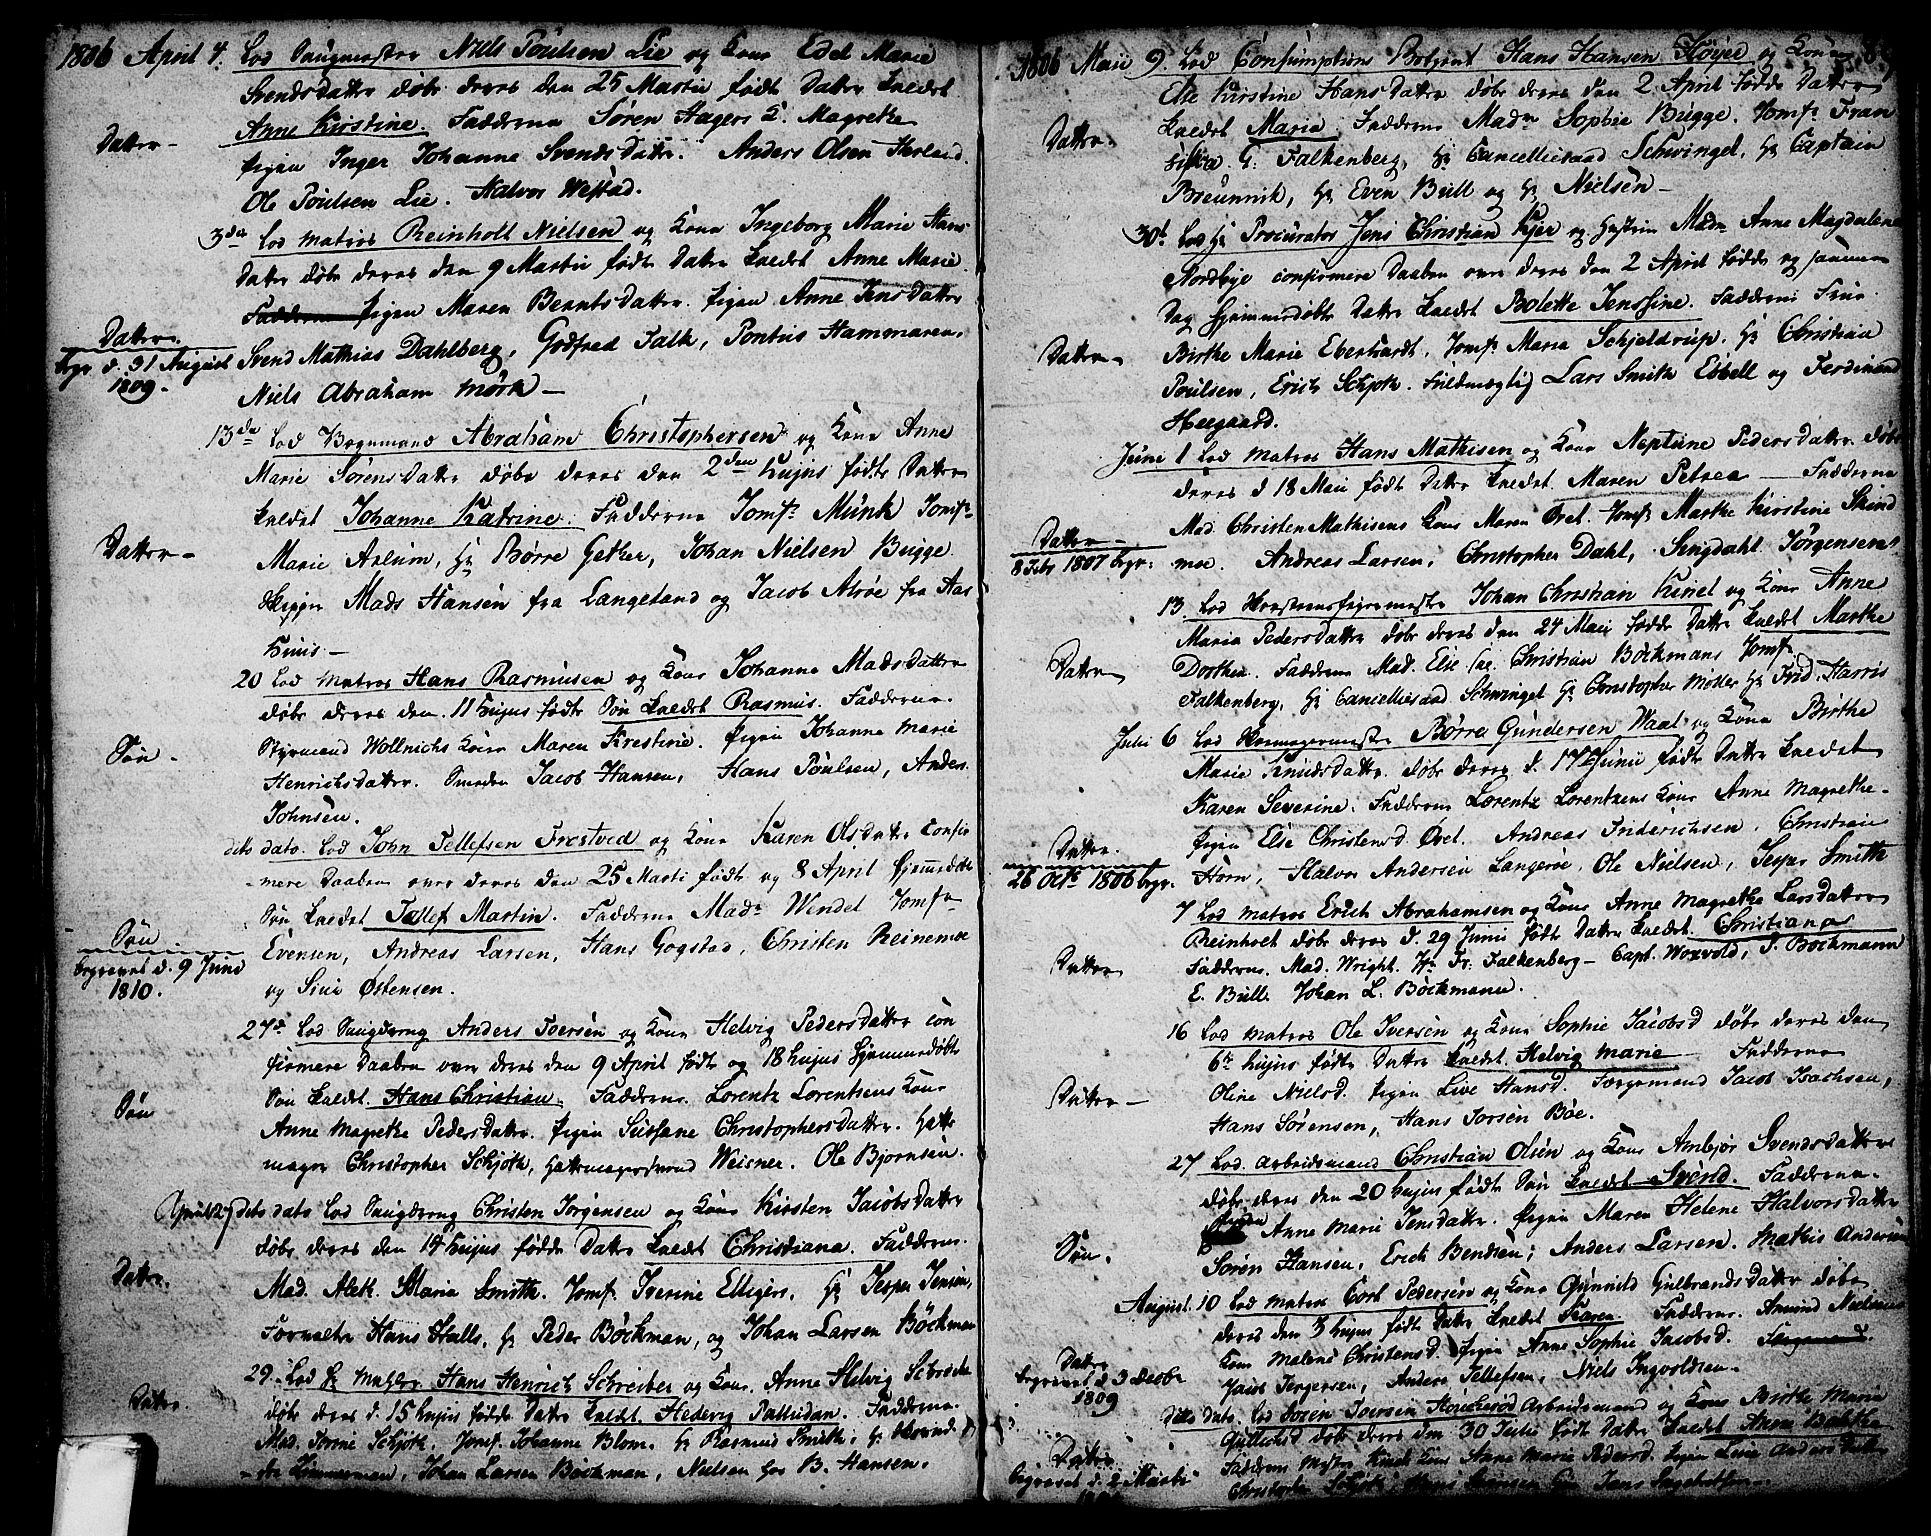 1806 April 4. Lod Saugmester Niels Poulsen Lie og Kone Edel Marie
Svendsdatter døbe deres den 25 Martii født Datter kaldet
Anne Kirstine. Fadderne Søren Hagers K. Magrethe
Datter
Pigen Inger Johanne Svendsdatter. Anders Olsen
Ole Poulsen Lie. Halvor Wefstad.
3de Lod Matros Reinholt Nielsen og Kone Ingeborg Marie Hans
Datter døbe deres den 9 Martii født Datter kaldet Anne Marie
Fadderne Pigen Maren Berntsdatter. Pigen Anne Jensdatter
Datter
begr d. 31 August
1809.
Svend Mathias Dahlberg, Godfred Falk, Pontus Hammaren,
Niels Abraham Mørk
13de Lod Abraham Christophersen og Kone Anne
Marie Sørensdatter døbe deres den 2den hujus født Datter
kaldet Johanne Katrine. Fadderne Jomfr Munk Jomfr
Datter
Marie Aslum, Hr Børre Getker, Johan Nielsen Bugge
Skipper Mads Hansen fra Langeland og Jacob Alrøe fra Aar
huus
20 Lod Matros Hans Rasmusen og Kone Johanne Madsdatter
døbe deres den 11 hujus født Søn kaldet Rasmus. Fadderne
Styrmand Wollnichs Kone Maren Kirstine. Pigen Johanne Marie
Søn
Henrichsdatter. Jacob Hansen, Hans Poulsen, Anders
Johnsen.
dito dato. Lod John Tellefsen Frestved og Kone Karen Olsdatter confir
mere Daaben over deres den 25 Marti født og 8 April hjemmedøbte
Søn kaldet Tellef Martin. Fadderne Madm Wendel Jomfr
Søn
begravet d. 9 Juni
1810.
Evensen, Andreas Larsen, Hans Gogstad, Christen Reinemoe
og Sivi Østensen.
27d Lod Saugdreng Anders Iversen og Kone Helvig Pedersdatter con
firmere Daaben over deres den 9 April født og 18 hujus hjemmedøbte
Søn kaldet Hans Christian. Fadderne Lorentz Lorentsens Kone
Søn
Anne Magrethe Pedersdatter. Pigen Susane Christophersdatter. Hatte
mager Christopher Schjøth, Hattemagersvend Weisner. Ole Bjørnsen.
April 27 dito dato Lod Saugdreng Christen Jørgensen og Kone Kirsten Jacobsdatter
døbe deres den 14 hujus fødde Datter kaldet Christiana. Fadderne
Datter
Mad. Aleth. Maria Smith. Jomf. Iverine Elligers, Hr Jesper Jensen,
Forvalter Hans Halls, Hr Peder Bøckman, og Johan Larsen Bøckman
29. Lod Hr Hans Henrich Schreiber og Kone Anne Helvig Schrøder
døbe deres d. 15 hujus fødde Datter kaldet Hedevig Palludan. Fadderne
Datter
Mad. Iverine Schjøth. Jomf. Johanne Blom. Hr Rasmus Smith,
Zimmerman, Johan Larsen Bøckman, Nielsen hos B. Hansen.
1806 Maii 9. Lod Consumptions Betjent Hans Hansen Høyer og Kone
Else Kirstine Hansdatter døbe deres den 2 April fødde Datter
kaldet Maria Fadderne Madm Sophie Bugge. Jomfr Fran
Datter
siska G. Falkenberg, Hr Cancelliraad Schwingel, Hr Captain
Breunnik, Hr Even Bull og Hr Nielsen
30t Lod Hr Procurator Jens Christian Kjer og Hustrue Madm Anne Magdalene
Nordbye confirmere Daaben over deres den 2 April fødde og samme
Dag hjemmedøbte Datter kaldet Bolette Jenssine. Fadderne Frue
Datter
Birthe Marie Eberhardt, Jomfr Maria Schjeldrup, Hr Christian
Poulsen, Erich Schjøth. Fuldmægtig Lars Smith Ebbell og Ferdinand
Heegaard.
Junii 1 Lod Matros Hans Mathisen og Kone Neptune Pedersdatter døbe
deres d 18 Maii født Datter kaldet Maren Petrea Fadderne
Mad. Christen Mathisens Kone Maren Øvel. Jomfr Marthe Kirstine
Datter
8 Febr 1807 begr:
moe. Andreas Larsen, Christopher Dahl, Singdahl Jørgensen
13 Lod Johan Christian Kinel og Kone Anne
Maria Pedersdatter døbe deres den 24 Maii fødde Datter kaldet Marthe
Datter
Dorthea. Fadderne Mad. Else sal. Christian Bøckmans Jomf.
Falkenberg, Hr Cancelliraad Schwingel Hr Christopher Møller Hr Frid. Harris
Julii 6 Lod Børre Gundersen Waal og Kone Birthe
Marie Knudsdatter. døbe deres d. 17 Junii født Datter kaldet
Karen Severine. Fadderne Lorentz Lorentzens Kone Anne Magrethe
Datter.
26 Octb 1806 begr.
Pigen Else Christensd Øvel. Andreas Friderichsen. Christian
Horn, Halvor Andersen Langerøe, Ole Nielsen, Jesper Smith
7 Lod Matros Erich Abrahamsen og Kone Anne Magrethe Larsdatter
Reinholt døbe deres d. 29 Junii født Datter kaldet Christiana
Datter
Fadderne. Mad. Wright. Fr. Falkenberg Capt. Woxvold, P. Bøckmann
E. Bull. Johan L. Bøckmann.
16 Lod Matros Ole Iversen og Kone Sophie Jacobsd døbe deres den
6te hujus født Datter kaldet Helvig Marie Fadderne
Datter
Oline Nielsd. Pigen Live Hansd. Jacob Isachsen,
Hans Sørensen, Hans Iversen Bøe.
27 Lod Arbeidsmand Christian Olsen og Kone Ambjør Svendsdatter
døbe deres den 20 hujus født Søn kaldet Svend. Fadderne
Søn.
Pigen Anne Marie Jensdatter. Pigen Maren Helene Halvorsdatter
Søren Hansen, Erich Bendsen, Anders Larsen. Mathis Andersen
August. 10 Lod Matros Carl Pedersen og Kone Gunnild Gulbrandsdatter døbe
deres den 3 hujus født Datter kaldet Karen Fadderne. Amund Nielsens
Datter
begravet d 3 Decbr
1809
Kone Malene Christensd. Pigen Anne Sophie Jacobsd.
Jacob Jørgensen, Anders Tellefsen, Niels Ingvoldsen
Dito Dato. Lod Søren Iversen Arbeidsmand og Kone Birthe Maria
døbe deres den 30 Julii født Datter kaldet Anne
Datter
begravet d. 2 Martii
Fadderne Kone Anne Marie Pedersd Pigen Live Andersdatter
Christopher Schjøth,